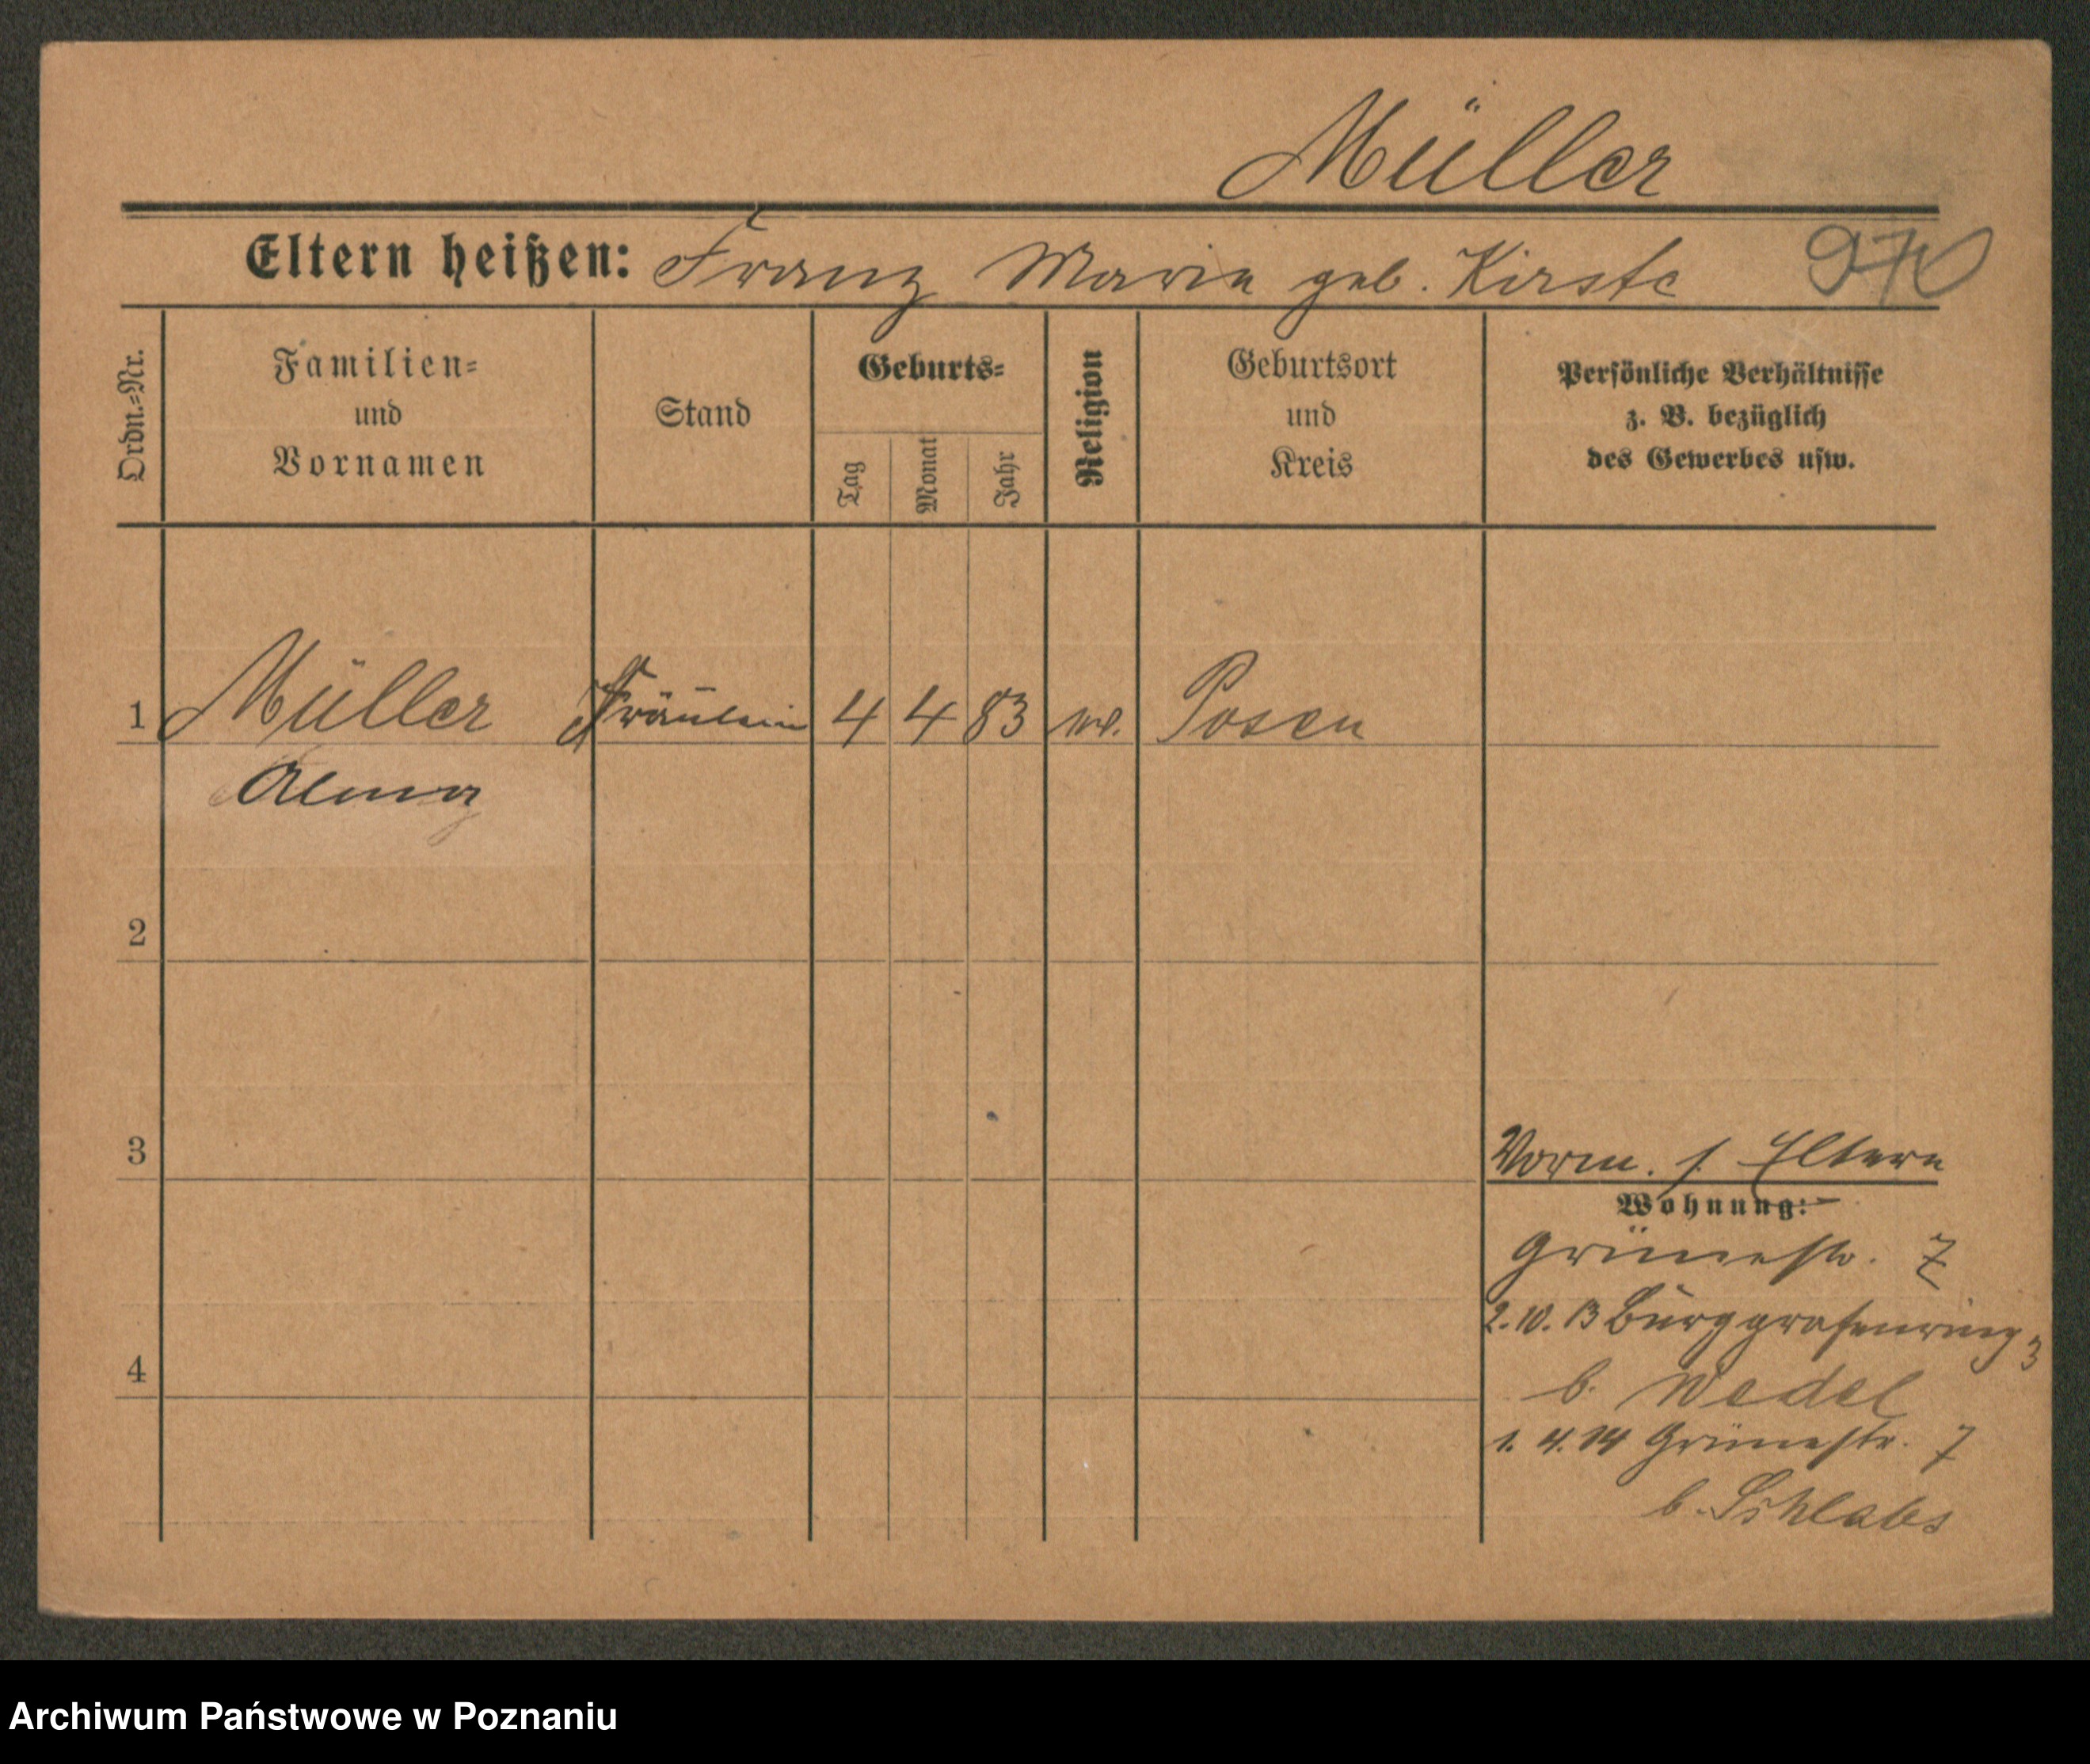 Müller
Eltern heißen: Franz Maria geb. Kirste
Ordn.=Nr.
Familien=
und
Vornamen
Stand
Geburts=
Tag
Monat
Jahr
Religion
Geburtsort
und
Kreis
Persönliche Verhältnisse
z. B. bezüglich
des Gewerbes usw.
1 Müller Fräulein 4 4 83 Posen
2
3
Vorm. s. Eltern
Wohnung:
Grünestr. 7
2.10.13 Burggrafenring 3
4
b. Wedel
1.4.14 Grünestr. 7
b. Schlabs
Archiwum Państwowe w Poznaniu